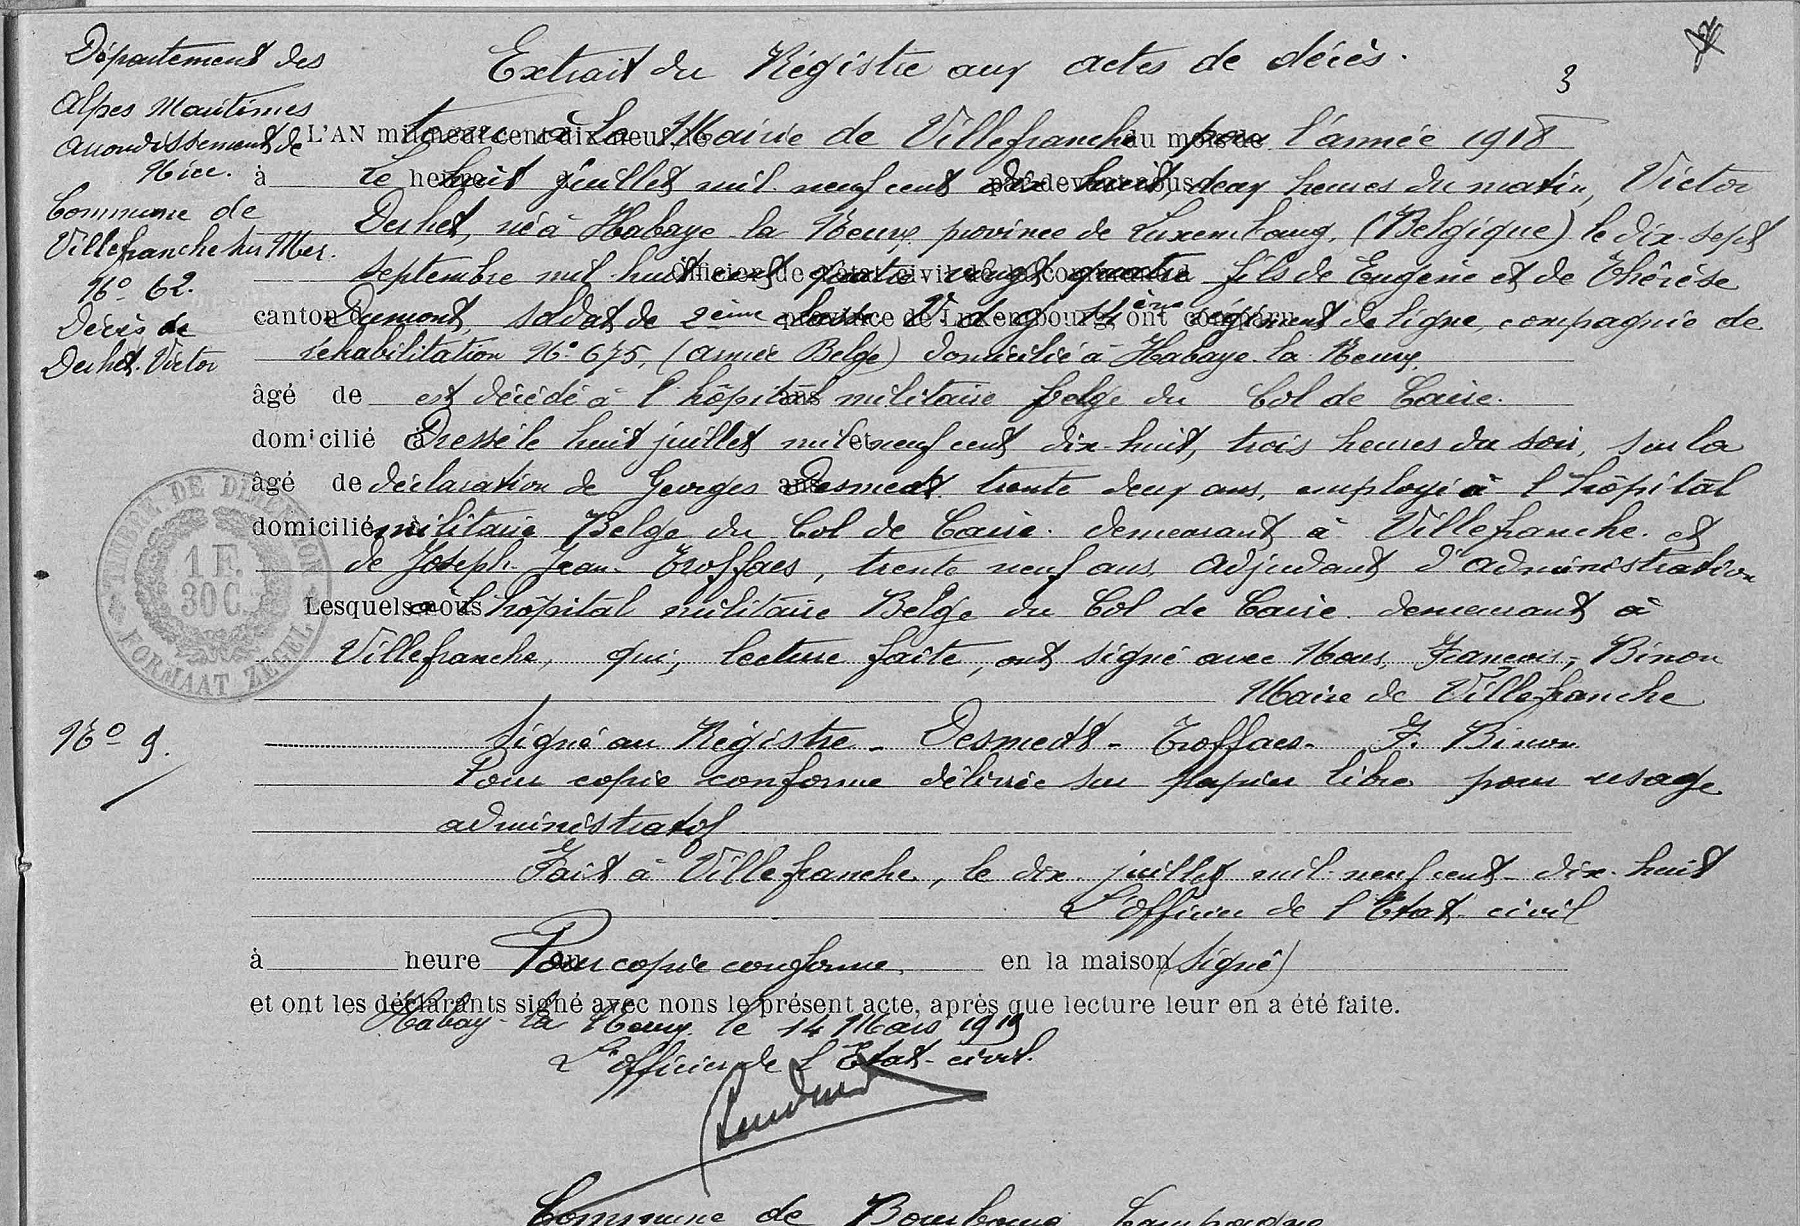 Extrait du Régistre aux actes de décès.
3
Département des
Alpes Maritimes
Arrondissement de
Nice.
Commune de
Villefranche sur Mer.
No 62.
Décès de
Deshet Victor
L'AN mil neuf cent dix-neuf, le du mois de
tenu à la Mairie de Villefranche pour l'année 1918
à heure par devant nous
Le huit juillet mil neuf cent dix huit, deux heures du matin, Victor
Deshet, né à Habaye-la Neuve province de Luxembourg, (Belgique) le dix-sept
Officier de l'état civil de la commune d
septembre mil huit cent quatre vingt quatre fils de Eugène et de Thérèse
canton d province de Luxembourg, ont comparu
Dumont, soldat de 2ème classe régiment de ligne, compagnie de
réhabilitation No 675, (armée Belge) domicilié à Habaye-la Neuve.
âgé de ans
est décédé à l'hôpital militaire belge du Col de Caire.
domicilié à et
Dressé le huit juillet mil neuf cent dix-huit, trois heures du soir, sur la
âgé de ans
déclaration de Georges Desmedt trente deux ans, employé à l'hôpital
domicilié à
militaire Belge du Col de Caire demeurant à Villefranche et
de Joseph Jean Troffaes, trente neuf ans, adjudant d'administration
Lesquels nous
à l'hôpital militaire Belge du Col de Caire demeurant à
Villefranche, qui, lecture faite, ont signé avec Nous, François, Binon
Maire de Villefranche
TIMBRE DE DIMENSION
1 F.
30 C.
FORMAAT ZEGEL
No 9.
Signé au Régistre - Desmedt - Troffaes - F. Binon
Pour copie conforme délivrée sur papier libre pour usage
administratif
Fait à Villefranche, le dix juillet mil neuf cent dix-huit
L'officier de l'Etat-civil
à heure en la maison
Pour copie conforme (Signé)
et ont les déclarants signé avec nons le présent acte, après que lecture leur en a été faite.
Habay-la Neuve le 14 Mars 1919
L'officier de l'Etat-civil.
Commune de Bourbourg Campagne